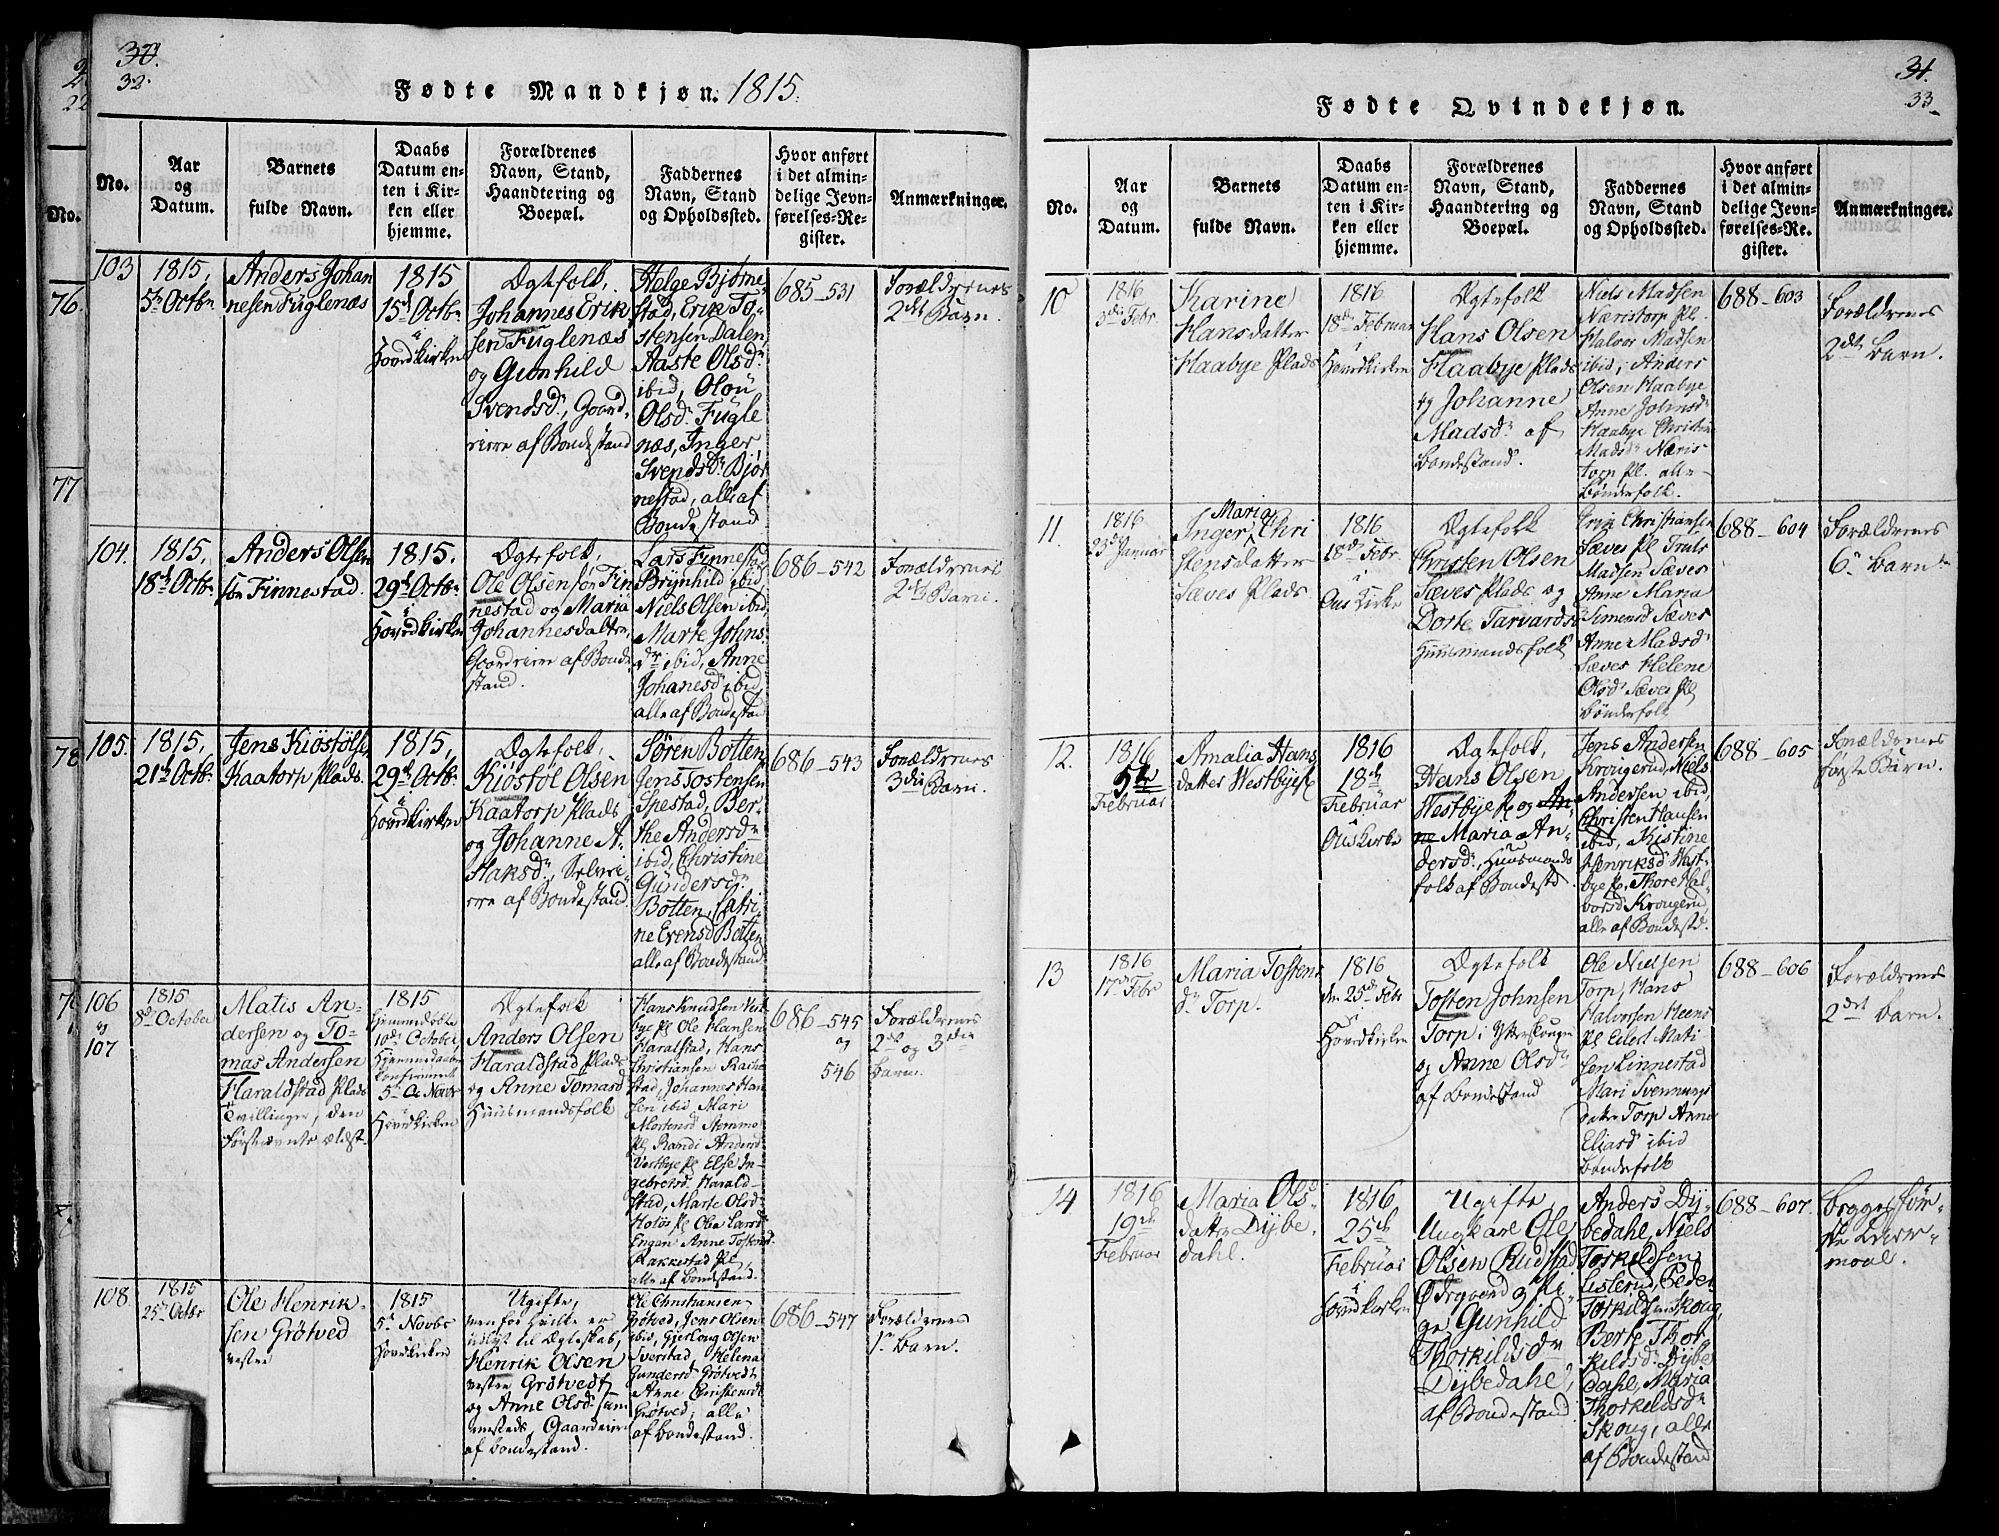 30.
32.
Fødte Mandkjøn. 1815.
No.
Aar
og
Datum.
Barnets
fulde Navn.
Daabs
Datum en-
ten i Kir-
ken eller
hjemme.
Forældrenes
Navn, Stand,
Haandtering og
Boepæl.
Faddernes
Navn, Stand
og Opholdssted.
Hvor anført
i det almin-
delige Jevn-
førelses-Re-
gister.
Anmærkninger.
103
1815,
5te Octbr
Anders Johan
nesen Fuglenæs
1815
15de Octbr
i
Hovedkirken
Ægtefolk,
Johannes Erik
sen Fuglenæs
og Gunhild
Svendsdr, Gaard-
eiere af Bondestand
Helge Bjørne
stad, Erik To-
stensen Dalen,
Aaste Olsdr
ibid, Olou
Olsdr Fugle
næs, Inger
Svendsdr Bjør
nestad, alle af
Bondestand
685-531
Forældrenes
2det Barn.
104.
1815,
18de Octbr
Anders Olsen
søn Finnestad.
1815.
29de Octbr
i
Hovedkirken
Ægtefolk,
Ole Olsen sør Fin
nestad og Maria
Johannesdatter,
Gaardeiere af Bonde
stand.
Lars Finnestad
Brynhild ibid
Niels Olsen ibid
Marte Johns
dr ibid, Anne
Johanesdr ibid,
alle af Bondestand
686-542
Forældrenes
2det Barn.
105.
1815,
21de Octbr
Jens Kiöstölsen
Kaatorp Plads.
1815,
29de Octbr
i
Hovedkirken
Ægtefolk,
Kiöstöl Olsen
Kaatorp Plads
og Johanne A-
slaksdr, Selvei-
ere af Bondestand.
Søren Botten,
Jens Tostensen
Spestad, Ber-
the Andersdr
ibid, Christine
Gundersdr
Botten, Catri-
ne Evensd Botten
alle af Bondestand.
686-543
Forældrenes
3die Barn.
106
og
107
1815
8de October
Matis An-
dersen og To-
mas Andersen
Haraldstad Plads
Tvillinger, den
førstnævnte ældst
1815
Hjemmedøbte
10de October
Hjemmedaaben
Confirmeret
5te Novbr
i
Hovedkirken
Ægtefolk
Anders Olsen
Haraldstad Plads
og Anne Tomasd
Huusmandsfolk
Hans Knudsen Vest
bye pl Ole Hansen
Haralstad, Hans
Christiansen Rakne
stad, Johannes Han
sen ibid Mari
Mortensd Aammo
pl Randi Andersd
Vestbye pl Else In-
gebretsd Harald-
stad, Marte Olsdr
Holøs pl Olea Larsdr
Engen Anne Tostensd
Rakkestad pl,
alle af bondestand.
686-545
og
546
Forældrenes
2det og 3die
Barn.
108.
1815
25de Octbr
Ole Henrik-
sen Grötved
vestre
1815
5te Novbr
Hovedkirken
Ugifte,
men for hvilke er
udlyst til Ægteskab,
Henrik Olsen
vestre Grötvedt
og Anne Olsdr sam
mesteds, Gaardeiere
af bondestand.
Ole Christiansen
Grötved, Jens Olsen
ibid, Gjerloug Olsen
Sverstad, Helena
Gundersd Grötvedt
Anne Christensdr
Grötved, alle
af bondestand.
686-547
Forældrenes
1te Barn.
31.
33
Fødte Qvindekjøn.
No.
Aar
og
Datum.
Barnets
fulde Navn.
Daabs
Datum en-
ten i Kir-
ken eller
hjemme.
Forældrenes
Navn, Stand,
Haandtering og
Boepæl.
Faddernes
Navn, Stand
og Opholdssted.
Hvor anført
i det almin-
delige Jevn-
førelses-Re-
gister.
Anmærkninger.
10
1816
3die Febr
Karine
Hansdatter
Haabye Plads
1816
18de Februar
i
Hovedkirken
Ægtefolk
Hans Olsen
Haabye Plads
og Johanne
Madsdr af
bondestand.
Niels Madsen
Næristorp pl.
Halvor Madsen
ibid, Anders
Olsen Haabye
Anne Johnsdr
Haabye Christine
Madsdr Næris
torp pl. alle
bønderfolk.
688-603
Forældrenes
2det Barn.
11.
1816
23de Januar
Inger Maria Chri
stensdatter
Sæves Plads
1816
18de Febr.
i
Ous Kirke
Ægtefolk
Christen Olsen
Sæves Plads og
Dorte Tarvardsdr
Huusmandsfolk
Erik Christiansen
Sæves pl Truls
Madsen Sæves
Anne Maria
Simensd Sæves
Anne Madsdr
Sæves Helene
Olsdr Sæves pl
bønderfolk
688-604
Forældrenes
6te Barn
12.
1816
5te
Februar
Amalia Hans
datter Westbye pl
1816
18de
Februar
i
Ous Kirke
Ægtefolk,
Hans Olsen
Westbye pl og An-
ne Maria An-
dersdr, Huusmands
folk af Bondestd.
Jens Andersen
Krougerud, Niels
Andersen ibid,
Christen Hansen
ibid, Kistine
Henriksdr West-
bye pl, Thore Hal-
vorsd Krougerud,
alle af Bondestd.
688-605
Forældrenes
første Barn.
13
1816
17de Febr
Maria Tosten
dr Torp.
1816
den 25de Febr
i
Hovedkirken
Ægtefolk
Tosten Johnsen
Torp i Ytterskougen
og Anne Olsdr
af bondestand
Ole Nielsen
Torp, Hans
Halvorsen Heen
pl Eilert Mati
sen Linnestad
Mari Svennungs
datter Torp Anne
Eliasd ibid
bønderfolk
688-606
Forældrenes
2det Barn.
14
1816
19de
Februar
Maria Ols
datter Dybe-
dahl.
1816
25de
Februar
i
Hovedkirken
Ugifte
Ungkarl Ole
Olsen Rudstad
Ødegaard og Pi-
ge Gunhild
Thorkildsdr
Dybedahl,
af Bondestand
Anders Dy-
bedahl, Niels
Torkildsen
Listerud, Peder
Torkildsen Skoug,
Berte Thor
kildsdr Dybe
dahl, Maria
Thorkildsdr
Skoug, alle
af Bondestand
688-607.
begges før-
ste Leier-
maal.
76
77
78